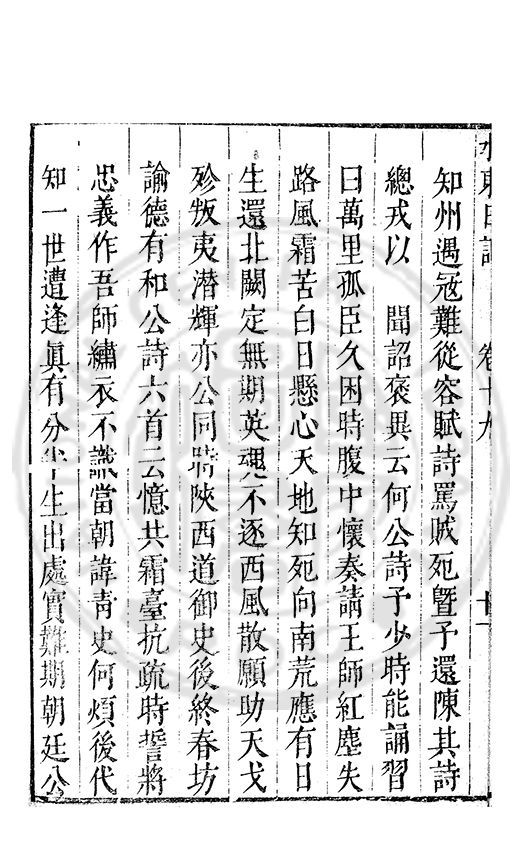 水東日記 卷十九 十一
知州遇冦難從容賦詩罵賊死曁子還陳其詩
總戎以 聞詔褒異云何公詩予少時能誦習
曰萬里孤臣久困時腹中懷奏請王師紅塵失
路風霜苦白日懸心天地知死向南荒應有日
生還北闕定無期英魂不逐西風散願助天戈
殄叛夷潛輝亦公同時陜西道御史後終春坊
諭德有和公詩六首云憶共霜臺抗疏時誓將
忠義作吾師繡衣不識當朝諱靑史何煩後代
知一世遭逢眞有分半生出處實難期朝廷公